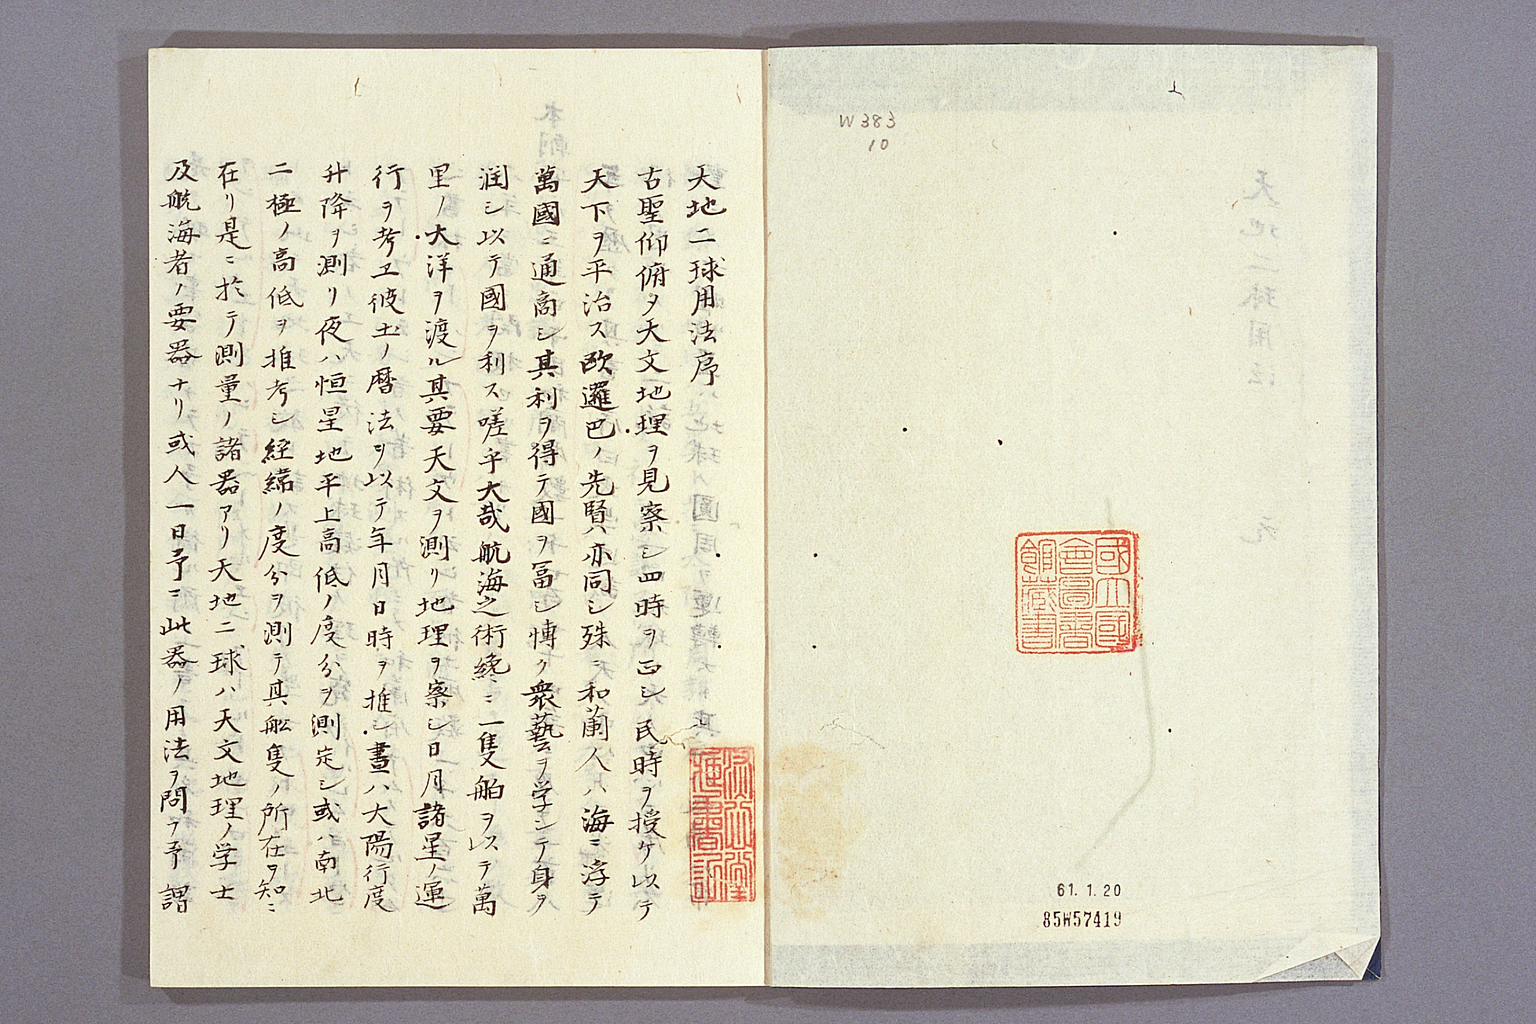 W383
10
國立國
會圖書
館藏書
61.1.20
85W57419
天地二球用法序
古聖仰俯夕天文地理ヲ見察シ四時ヲ正シ民時ヲ授ケ以テ
天下ヲ平治ス欧邏巴ノ先賢ハ亦同シ殊ニ和蘭人ハ海ニ浮テ
萬國ニ通商シ其利ヲ得テ國ヲ冨シ博ク衆藝ヲ学シテ身ヲ
潤シ以テ國ヲ利ス嗟乎大哉航海之術纔ニ一隻舶ヲ以テ萬
里ノ大洋ヲ渡ル其要天文ヲ測リ地理ヲ察シ日月諸星ノ運
行ヲ考エ彼土ノ暦法ヲ以テ年月日時ヲ推シ晝ハ大陽行度
升降ヲ測リ夜ハ恒星地平上高低ノ度分ヲ測定シ或ハ南北
二極ノ高低ヲ推考シ経緯ノ度分ヲ測テ其舩隻ノ所在ヲ知ニ
在リ是ニ於テ測量ノ諸器アリ天地二球ハ天文地理ノ学士
及航海者ノ要器ナリ或人一日予ニ此器ノ用法ヲ問フ予謂